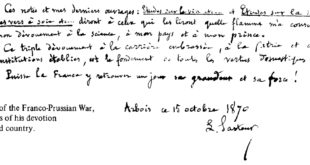 Ces notes et mes derniers ouvrages: Etudes sur la et Etudes sur la
vers à soie diront à celui qui les liront quelle flamme m'a
mon dévouement à la science, à mon pays et à mon prince.
Ce triple dévouement à la carrière embrassée, à la patrie et
institutions établies, est le fondement de toutes les vertus domestiques
Puisse la France y retrouver un jour sa grandeur et sa force!
of the Franco-Prussian War,
s of his devotion
d country.
Arbois ce 15 octobre 1870
L. Pasteur